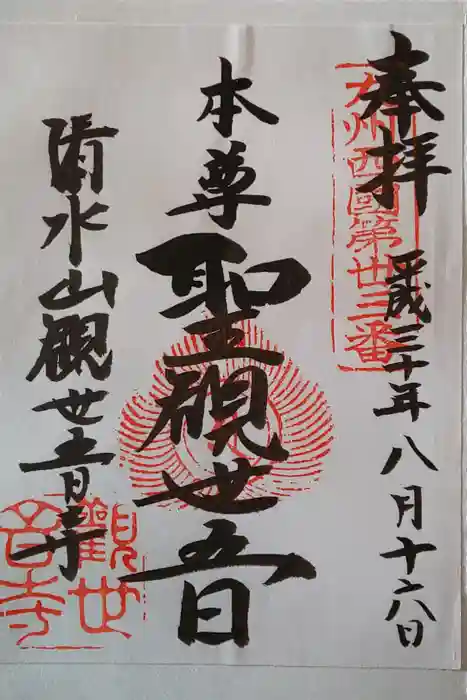 奉拝
平成三十年八月十六日
九州西國第丗三番
本尊
聖観世音
清水山観世音寺
觀世音寺